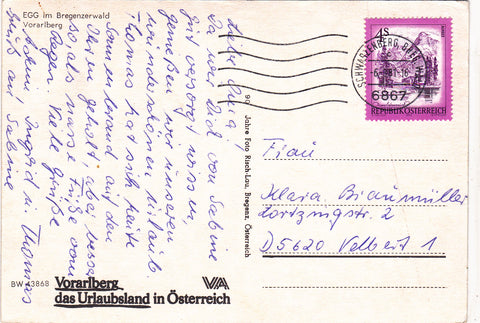 EGG im Bregenzerwald
Vorarlberg
Liebe Oma!
Da wir Dich von Sabine
gut versorgt wissen,
genießen wir unseren
wunderschönen Urlaub
Thomas hat sich heute
Sonnenbrand auf den
geholt aber besser
so als nasse Füße vom
Regen. Viele Grüße
Ingrid u. Thomas
Gruß auf Sabine
BW 43868
Vorarlberg
das Urlaubsland in Österreich
VA
90 Jahre Foto Risch-Lau, Bregenz, Österreich
4S
REPUBLIK ÖSTERREICH
SCHWARZENBERG
6867
Frau
Klara Braumüller
Lortzingstr. 2
D 5620 Velbert 1